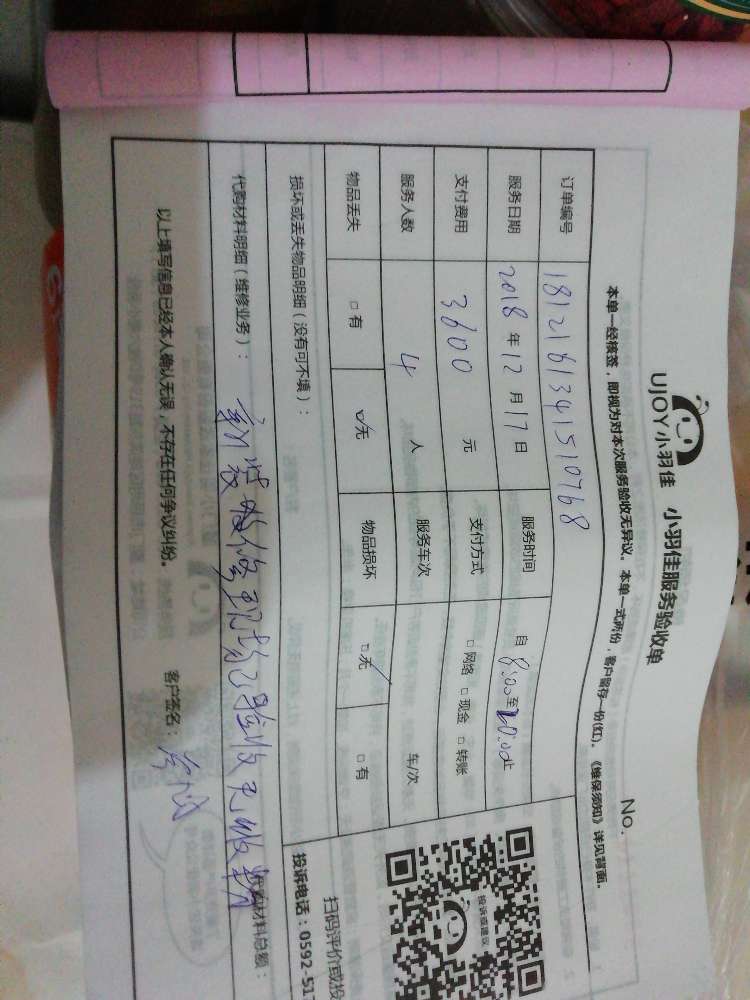 UJOY小羽佳 小羽佳服务验收单
No.
本单一经核签，即视为对本次服务验收无异议。本单一式两份，客户留存一份(红)。《维保须知》详见背面。
订单编号 1812161341510768
服务日期 2018年12月17日 服务时间 自8:00至20:00止
支付费用 3600元 支付方式 □网络 □现金 □转账
服务人数 4人 服务车次 车/次
物品丢失 □有 □无 物品损坏 □无 □有
损坏或丢失物品明细（没有可不填）：
扫码评价或投
投诉电话：0592-51
投诉或建议
代购材料明细（维修业务）： 代购材料总额：
现场已验收无
以上填写信息已经本人确认无误，不存在任何争议纠纷。 客户签名：